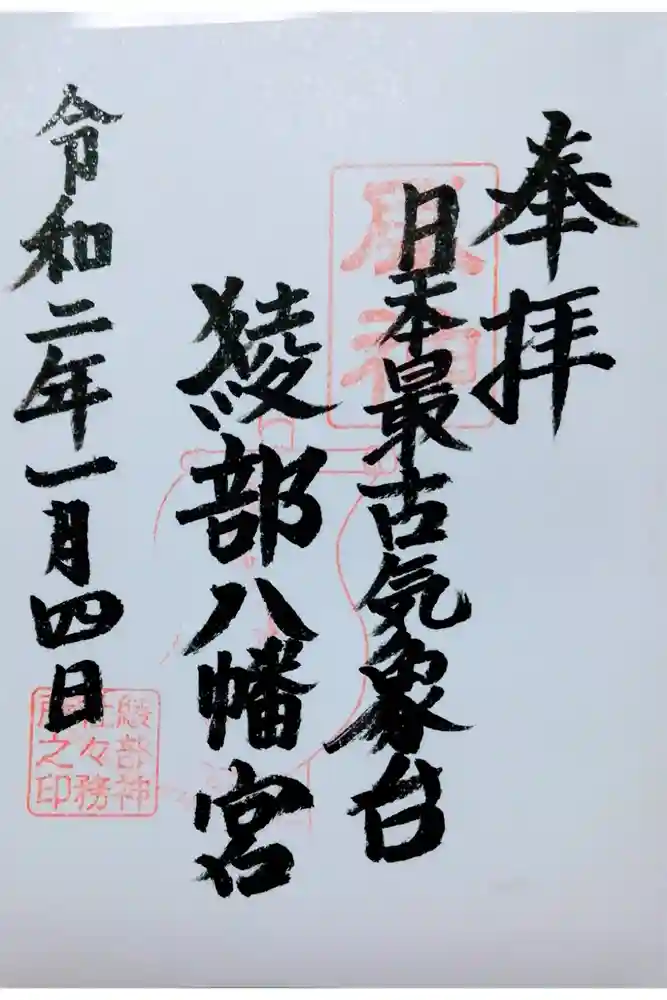 奉拝
日本最古気象台
綾部八幡宮
令和二年一月四日
風神
綾部神
社々務
所之印